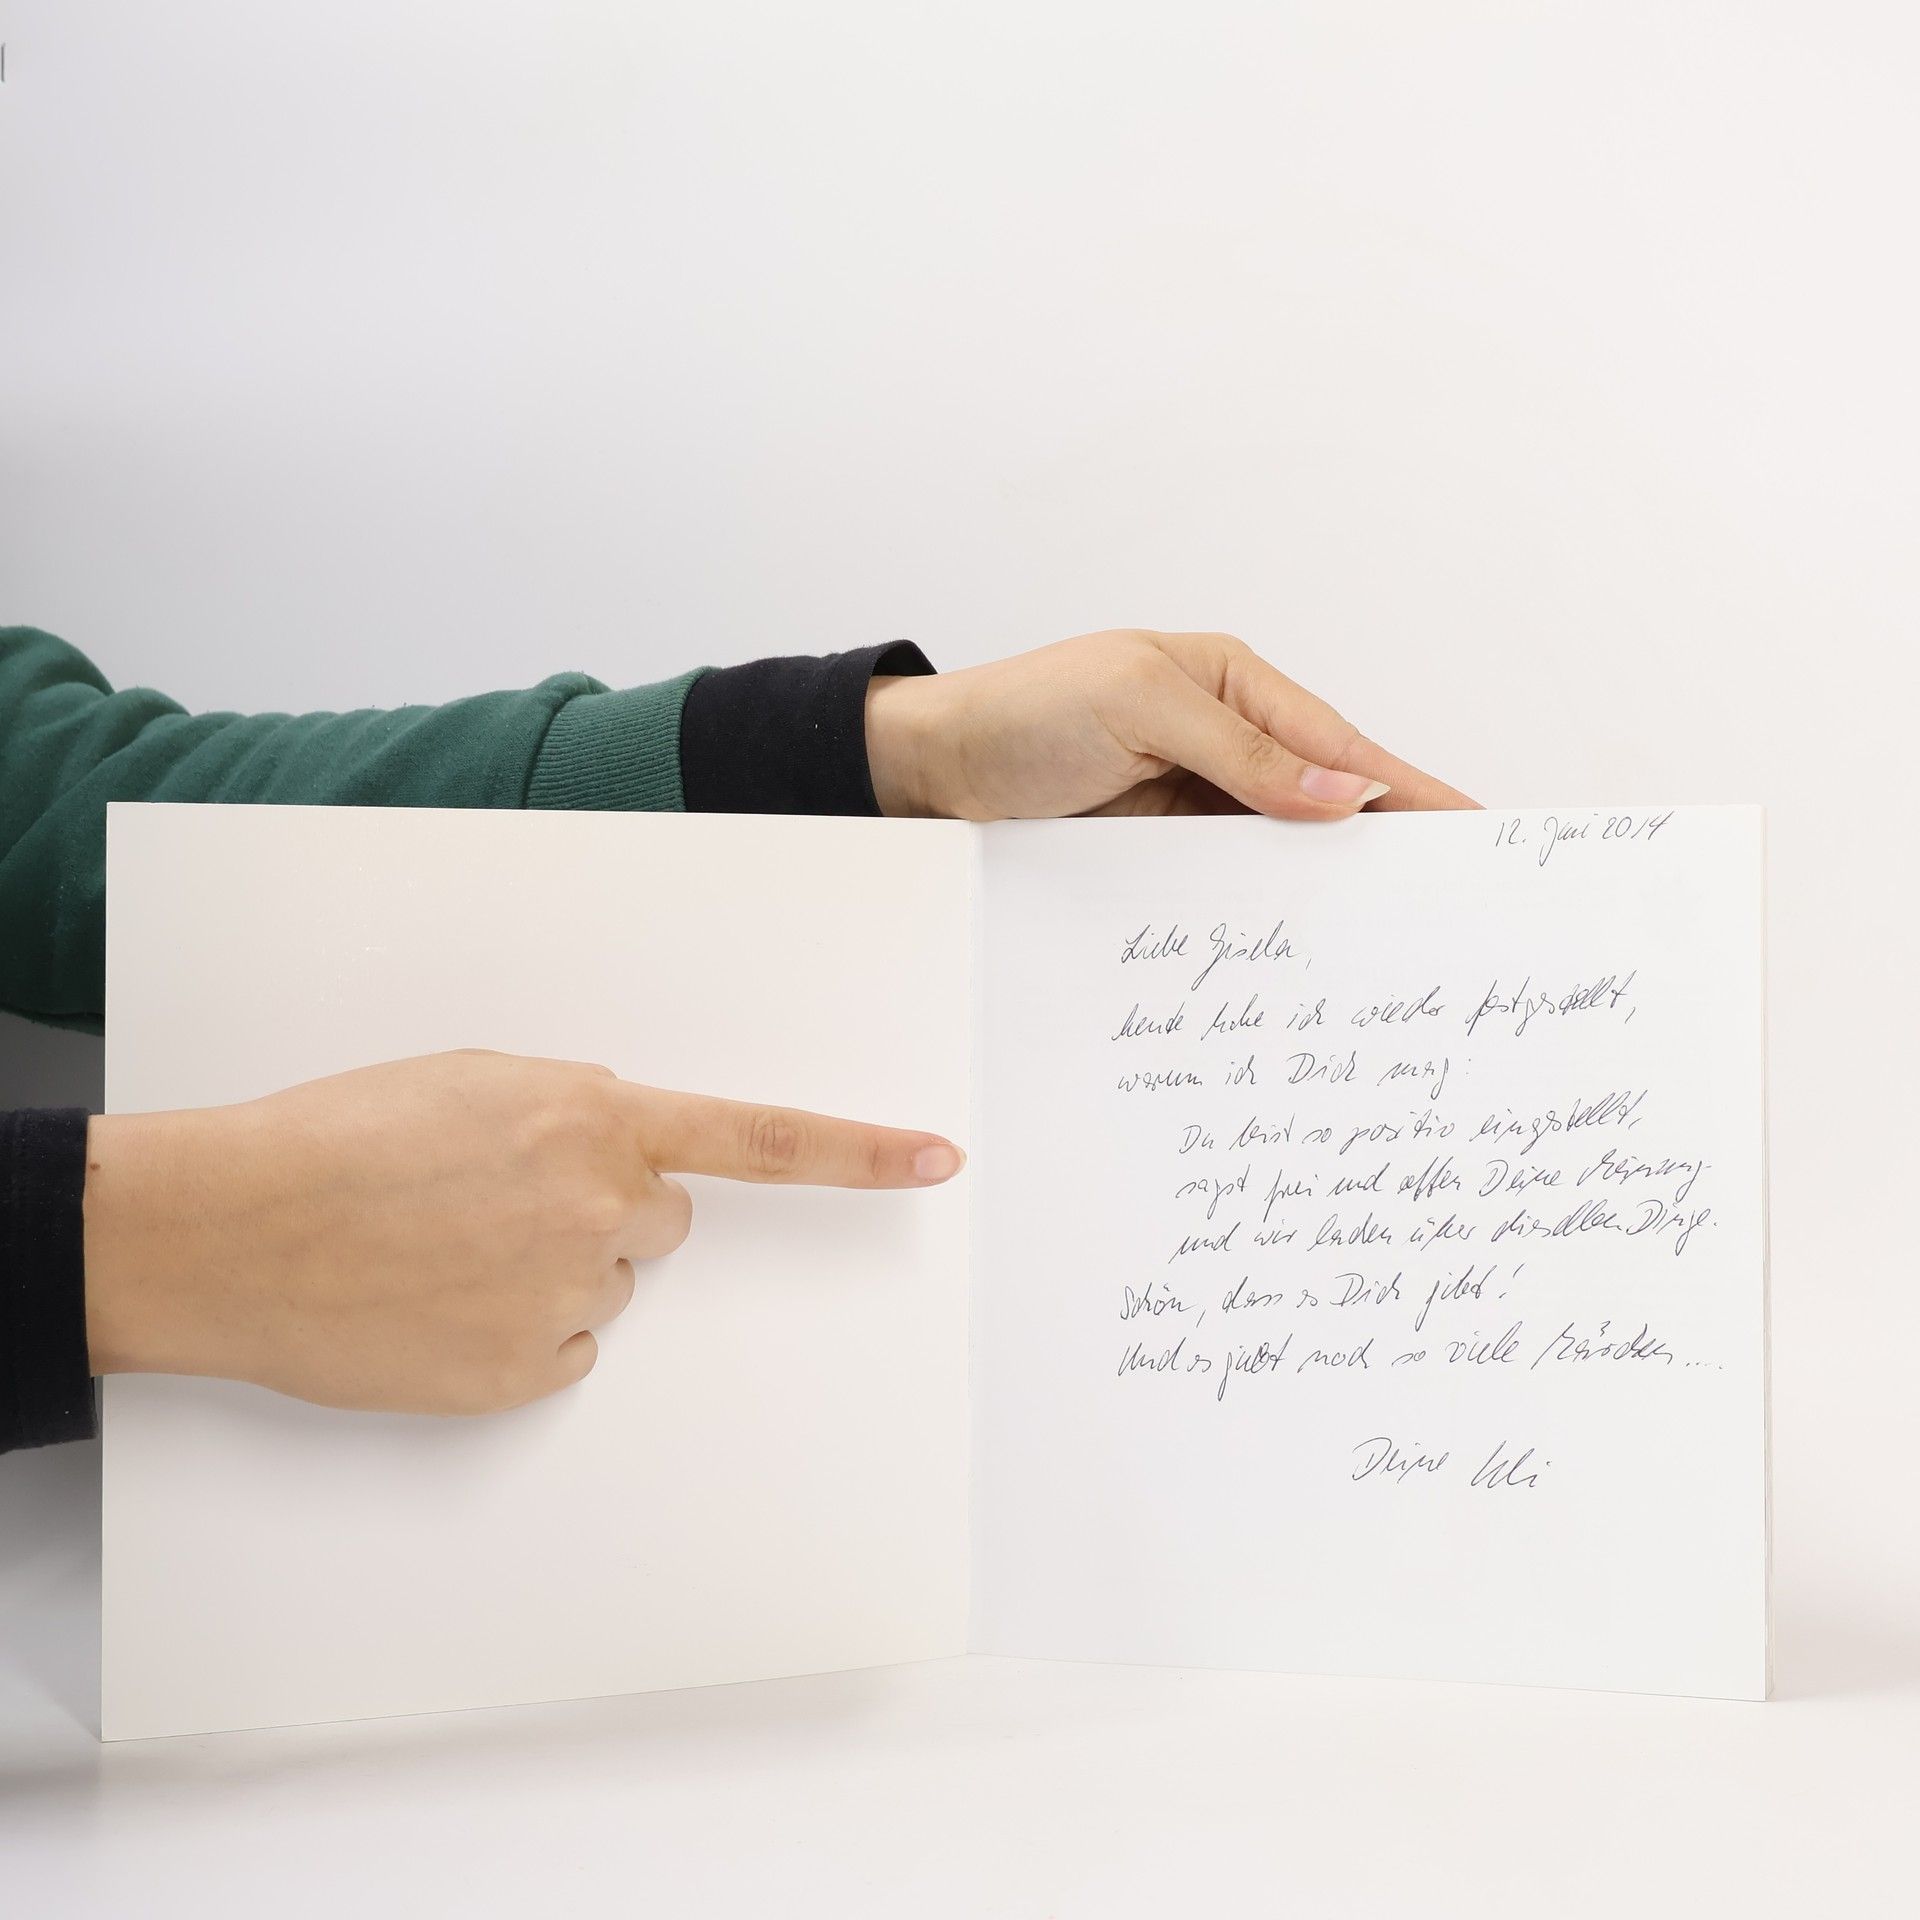 12. Juni 2014
Liebe Gisela,
heute habe ich wieder festgestellt,
warum ich Dich mag:
Du bist so positiv eingestellt,
sagst frei und offen Deine Meinung
und wir lachen über dieselben Dinge.
Schön, dass es Dich gibt!
Und es gibt noch so viele
Deine